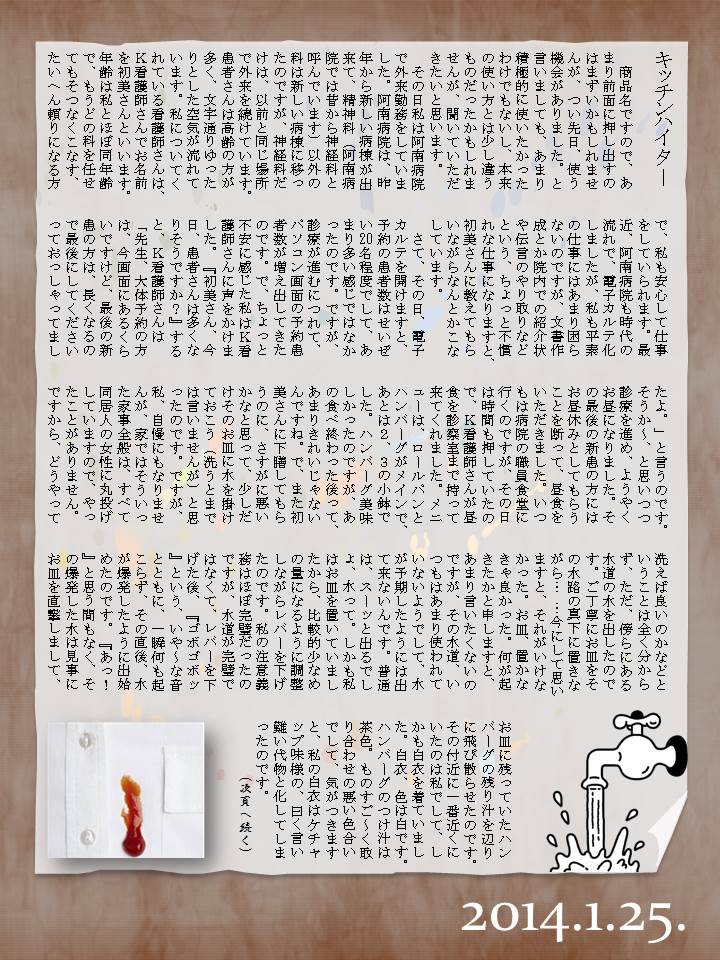 キッチンハイター
商品名ですので、あ
まり前面に押し出すの
はまずいかもしれませ
んが、つい先日、使う
機会がありました。と
言いましても、あまり
積極的に使いたかった
わけでもないし、本来
の使い方とは少し違う
ものだったかもしれま
せんが、聞いていただ
きたいと思います。
その日私は阿南病院
で外来勤務をしていま
した。阿南病院は、昨
年から新しい病棟が出
来て、精神科（阿南病
院では昔から神経科と
呼んでいます）以外の
科は新しい病棟に移っ
たのですが、神経科だ
けは、以前と同じ場所
で外来を続けています。
患者さんは高齢の方が
多く、文字通りゆった
りとした空気が流れて
います。私についてく
れている看護師さんは、
Ｋ看護師さんでお名前
を初美さんといいます。
年齢は私とほぼ同年齢
で、もうどの科を任せ
てもそつなくこなす、
たいへん頼りになる方
で、私も安心して仕事
をしていられます。最
近、阿南病院も時代の
流れで、電子カルテ化
しましたが、私も平素
の仕事にはあまり困ら
ないのですが、文書作
成とか院内での紹介状
や伝言のやり取りなど
という、ちょっと不慣
れな仕事になりますと、
初美さんに教えてもら
いながらなんとかこな
しています。
さて、その日、電子
カルテを開けますと、
予約の患者数はせいぜ
い20名程度でして、あ
まり多い感じではなか
ったのです。ですが、
診療が進むにつれて、
パソコン画面の予約患
者数が増え出してきた
のです。で、ちょっと
不安に感じた私はＫ看
護師さんに声をかけま
した。『初美さん、今
日、患者さんは多くな
りそうですか？』する
と、Ｋ看護師さんは
「先生、大体予約の方
は、今画面にあるくら
いですけど、最後の新
患の方は、長くなるの
で最後にしてください
っておっしゃってまし
たよ。」と言うのです。
そうか～、と思いつつ
診療を進め、ようやく
お昼になりました。そ
の最後の新患の方には
お昼休みとしてもらう
ことを断って、昼食を
いただきました。いつ
もは病院の職員食堂に
行くのですが、その日
は時間も押していたの
で、Ｋ看護師さんが昼
食を診察室まで持って
来てくれました。メニ
ューは、ロールパンと
ハンバーグがメインで、
あとは２、３の小鉢で
した。ハンバーグ美味
しかったのですが、あ
の食べ終わった後って、
あまりきれいじゃない
んですね。で、また初
美さんに下膳してもら
うのに、さすがに悪い
かなと思って、少しだ
けそのお皿に水を掛け
ておこう（洗うとまで
は言いませんが）と思
ったのです。ですが、
私、自慢にもなりませ
んが、家ではそういっ
た家事全般は、すべて
同居人の女性に丸投げ
していますので、やっ
たことがありません。
ですから、どうやって
洗えば良いのかなどと
いうことは全く分から
ず、ただ、傍らにある
水道の水を出したので
す。ご丁寧にお皿をそ
の水路の真下に置きな
がら……今にして思い
ますと、それがいけな
かった。お皿、置かな
きゃ良かった。何が起
きたかと申しますと、
あまり言いたくないの
ですが、その水道、い
つもはあまり使われて
いないようでして、水
が予期したようには出
て来ないんです。普通
は、スーッと出るでし
ょ、水って。しかも私
はお皿を置いていまし
たから、比較的少なめ
の量になるように調整
しながらレバーを下げ
たのです。私の注意義
務はほぼ完璧だったの
ですが、水道が完璧で
はなくて、レバーを下
げた後、『ゴボゴボッ
』という、いや～な音
とともに、一瞬何も起
こらず、その直後、水
が爆発したように出始
めたのです。『あっ！
』と思う間もなく、そ
の爆発した水は見事に
お皿を直撃しまして、
お皿に残っていたハン
バーグの残り汁を辺り
に飛び散らせたのです。
その付近に一番近くに
いたのは私でして、し
かも白衣を着ていまし
た。白衣、色は白です。
ハンバーグのつけ汁は
茶色。ものすご～く取
り合わせの悪い色合い
でして、気がつきます
と、私の白衣はケチャ
ップ味様の、曰く言い
難い代物と化してしま
ったのです。
（次頁へ続く）
2014.1.25.